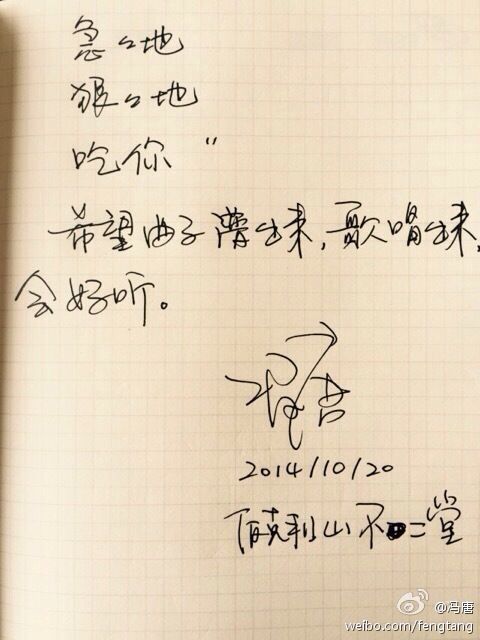 急々地
狠々地
吃你”
希望曲子出来，歌唱出来，
会好听。
冯唐
2014/10/20
伯克利山不二堂
@冯唐
weibo.com/fengtang